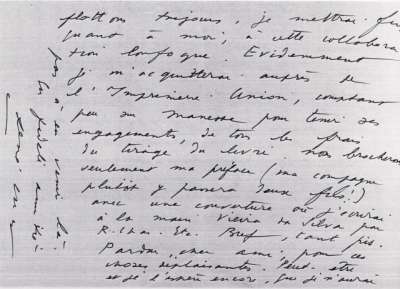 flottons toujours, je mettrai fin
quant à moi, à cette collabora-
tion loufoque. Évidemment
je m'acquitterai auprès de
l'Imprimerie Union, comptant
peu sur Manesse pour tenir ses
engagements, de tous les frais
du tirage du livre. non brocherons
seulement ma préface (ma compagne
plutôt y passera deux fils!)
avec une couverture où j'écrirai
à la main: Vieira da Silva par
R. Char. Etc. Bref, tant pis.
Pardon, cher ami, pour ces
choses déplaisantes. Peut-être
et je l'espère encore, que je n'aurai
pas à en venir là.